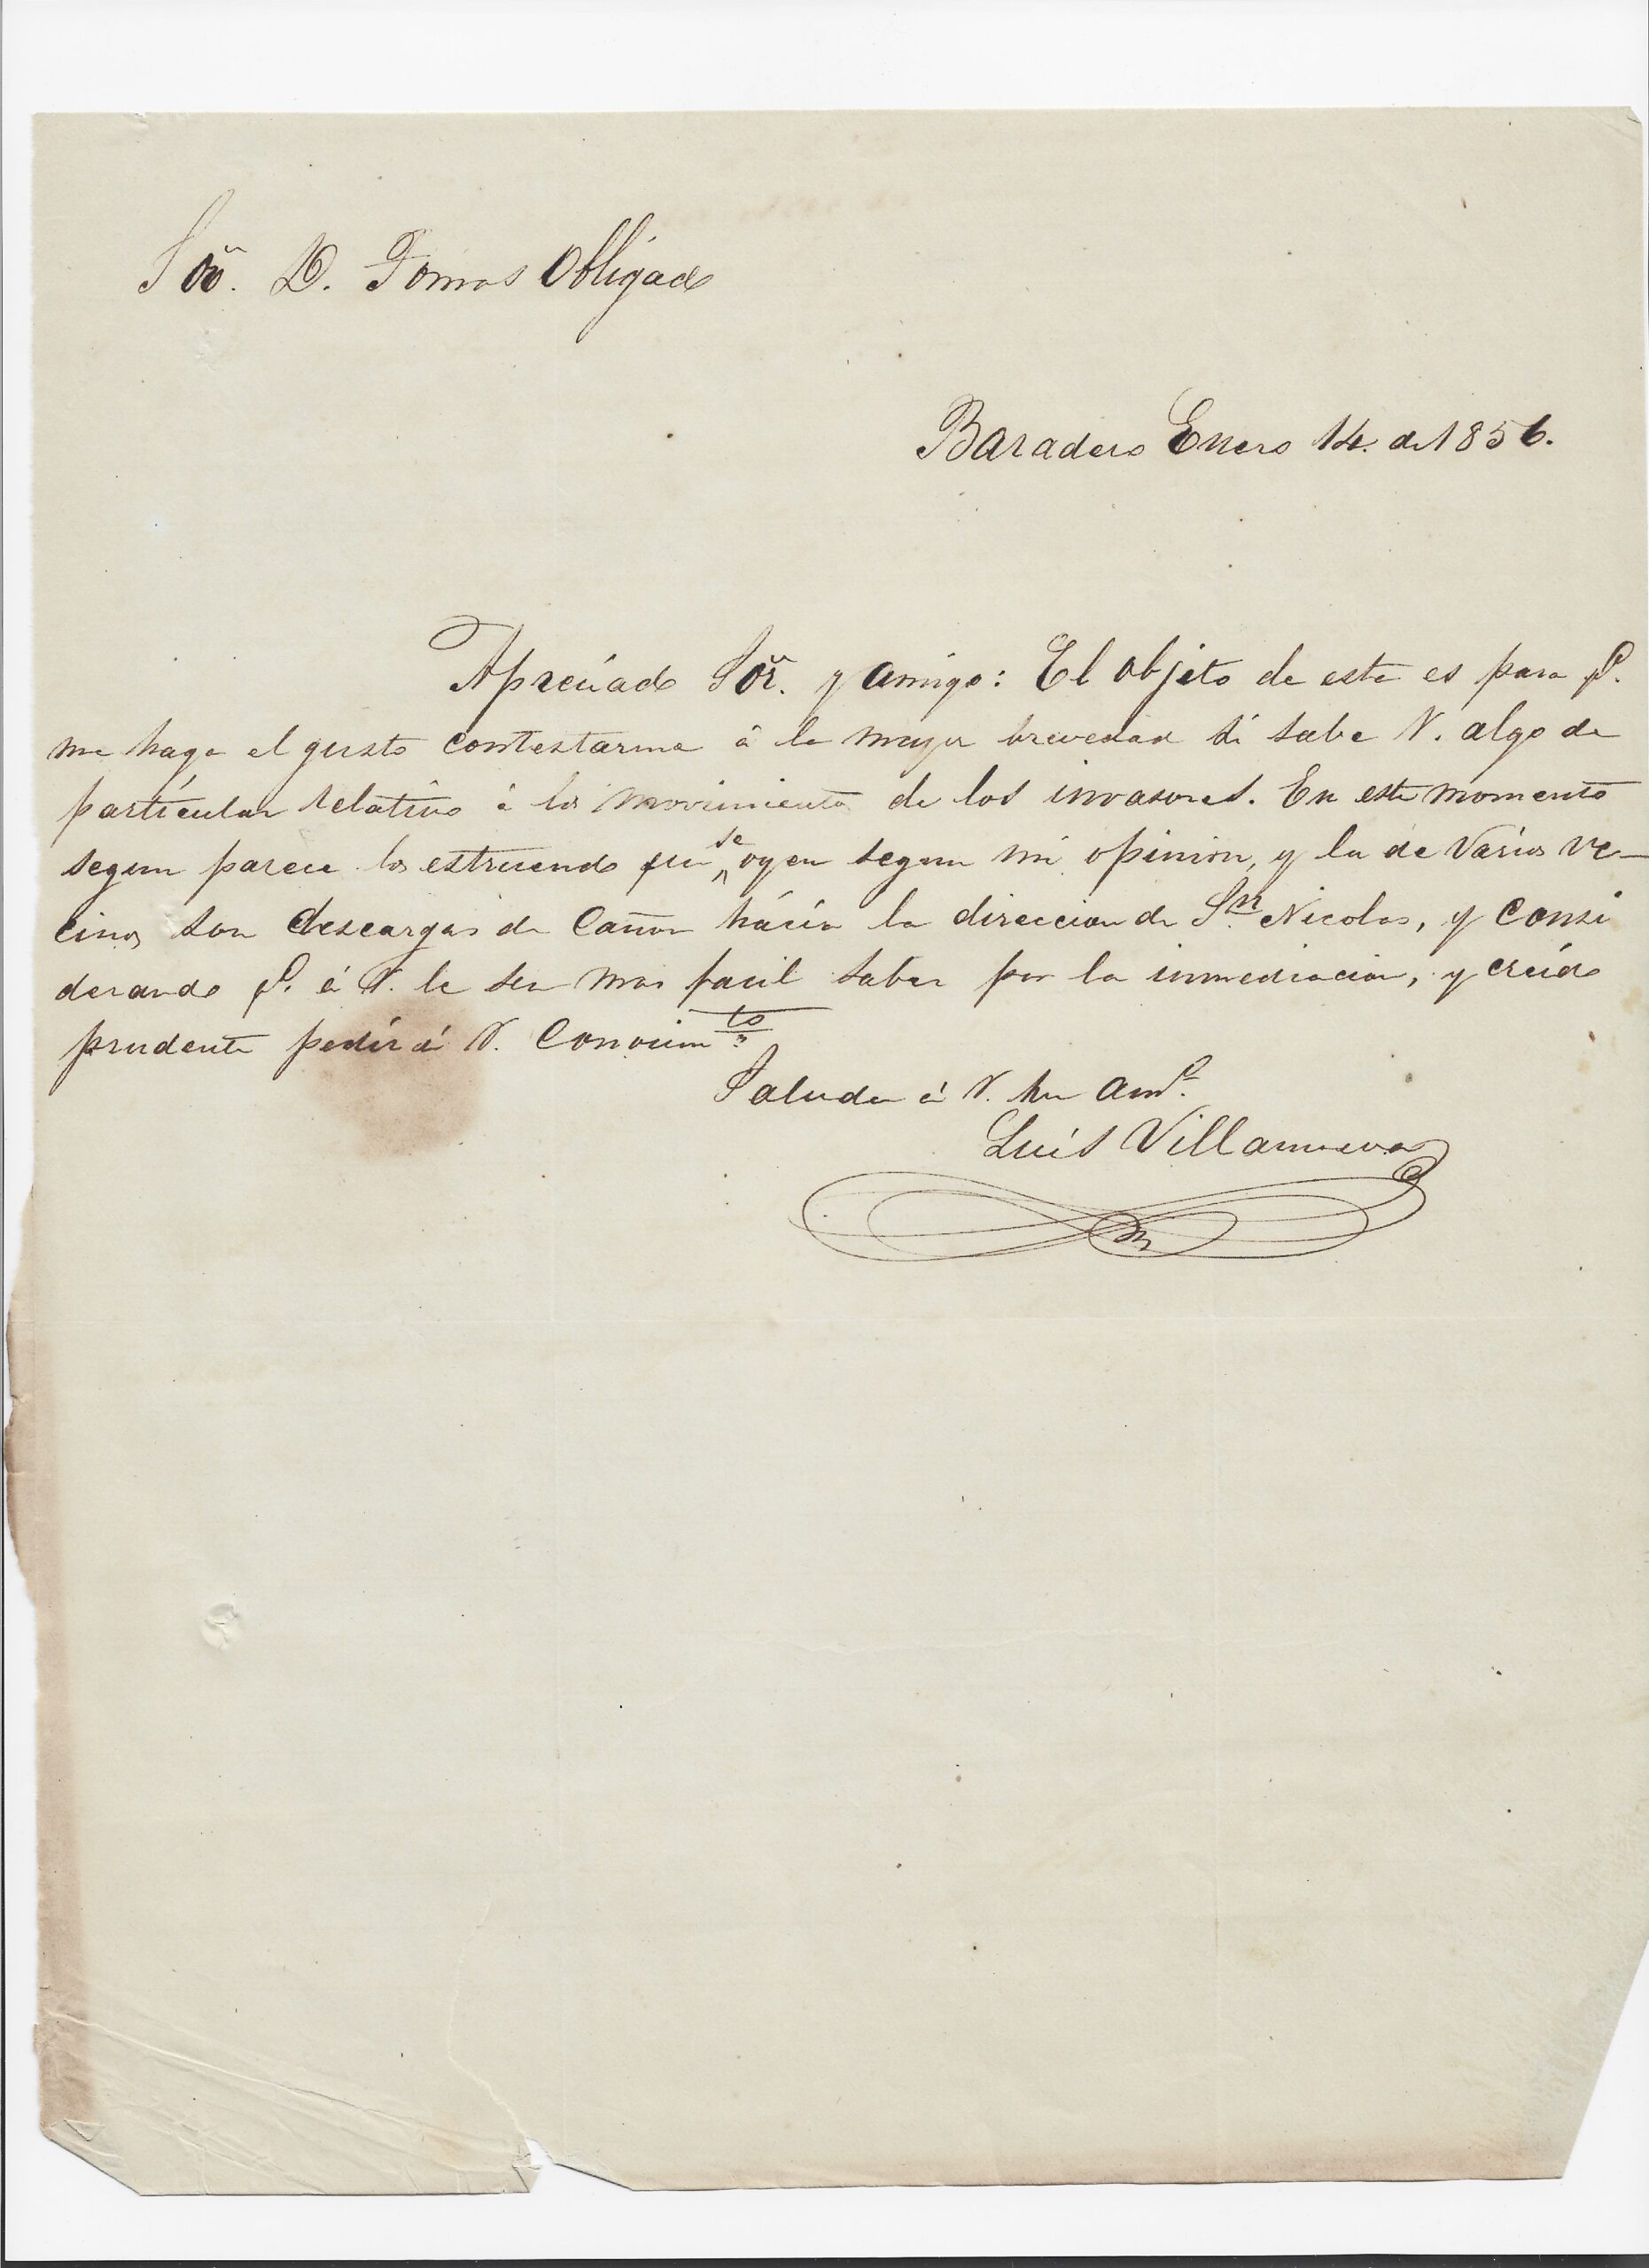 Sor. D. Tomas Obligado
Baradero Enero 14. de 1856.
Apreciado Sor. y amigo: El objeto de este es para q.e
me haga el gusto contestarme á la mayor brevedad si sabe V. algo de
particular relativo á los movimientos de los invasores. En este momento
segun parece los estruendo que se oyen segun mi opinion, y la de varios ve-
cinos son descargas de Cañon hácia la direccion de Sn. Nicolas, y consi
derando q.e á V. le sea mas facil saber por la inmediacion, y creido
prudente pedir á V. Conocimto
Saluda á V. su amo.
Luis Villanueva